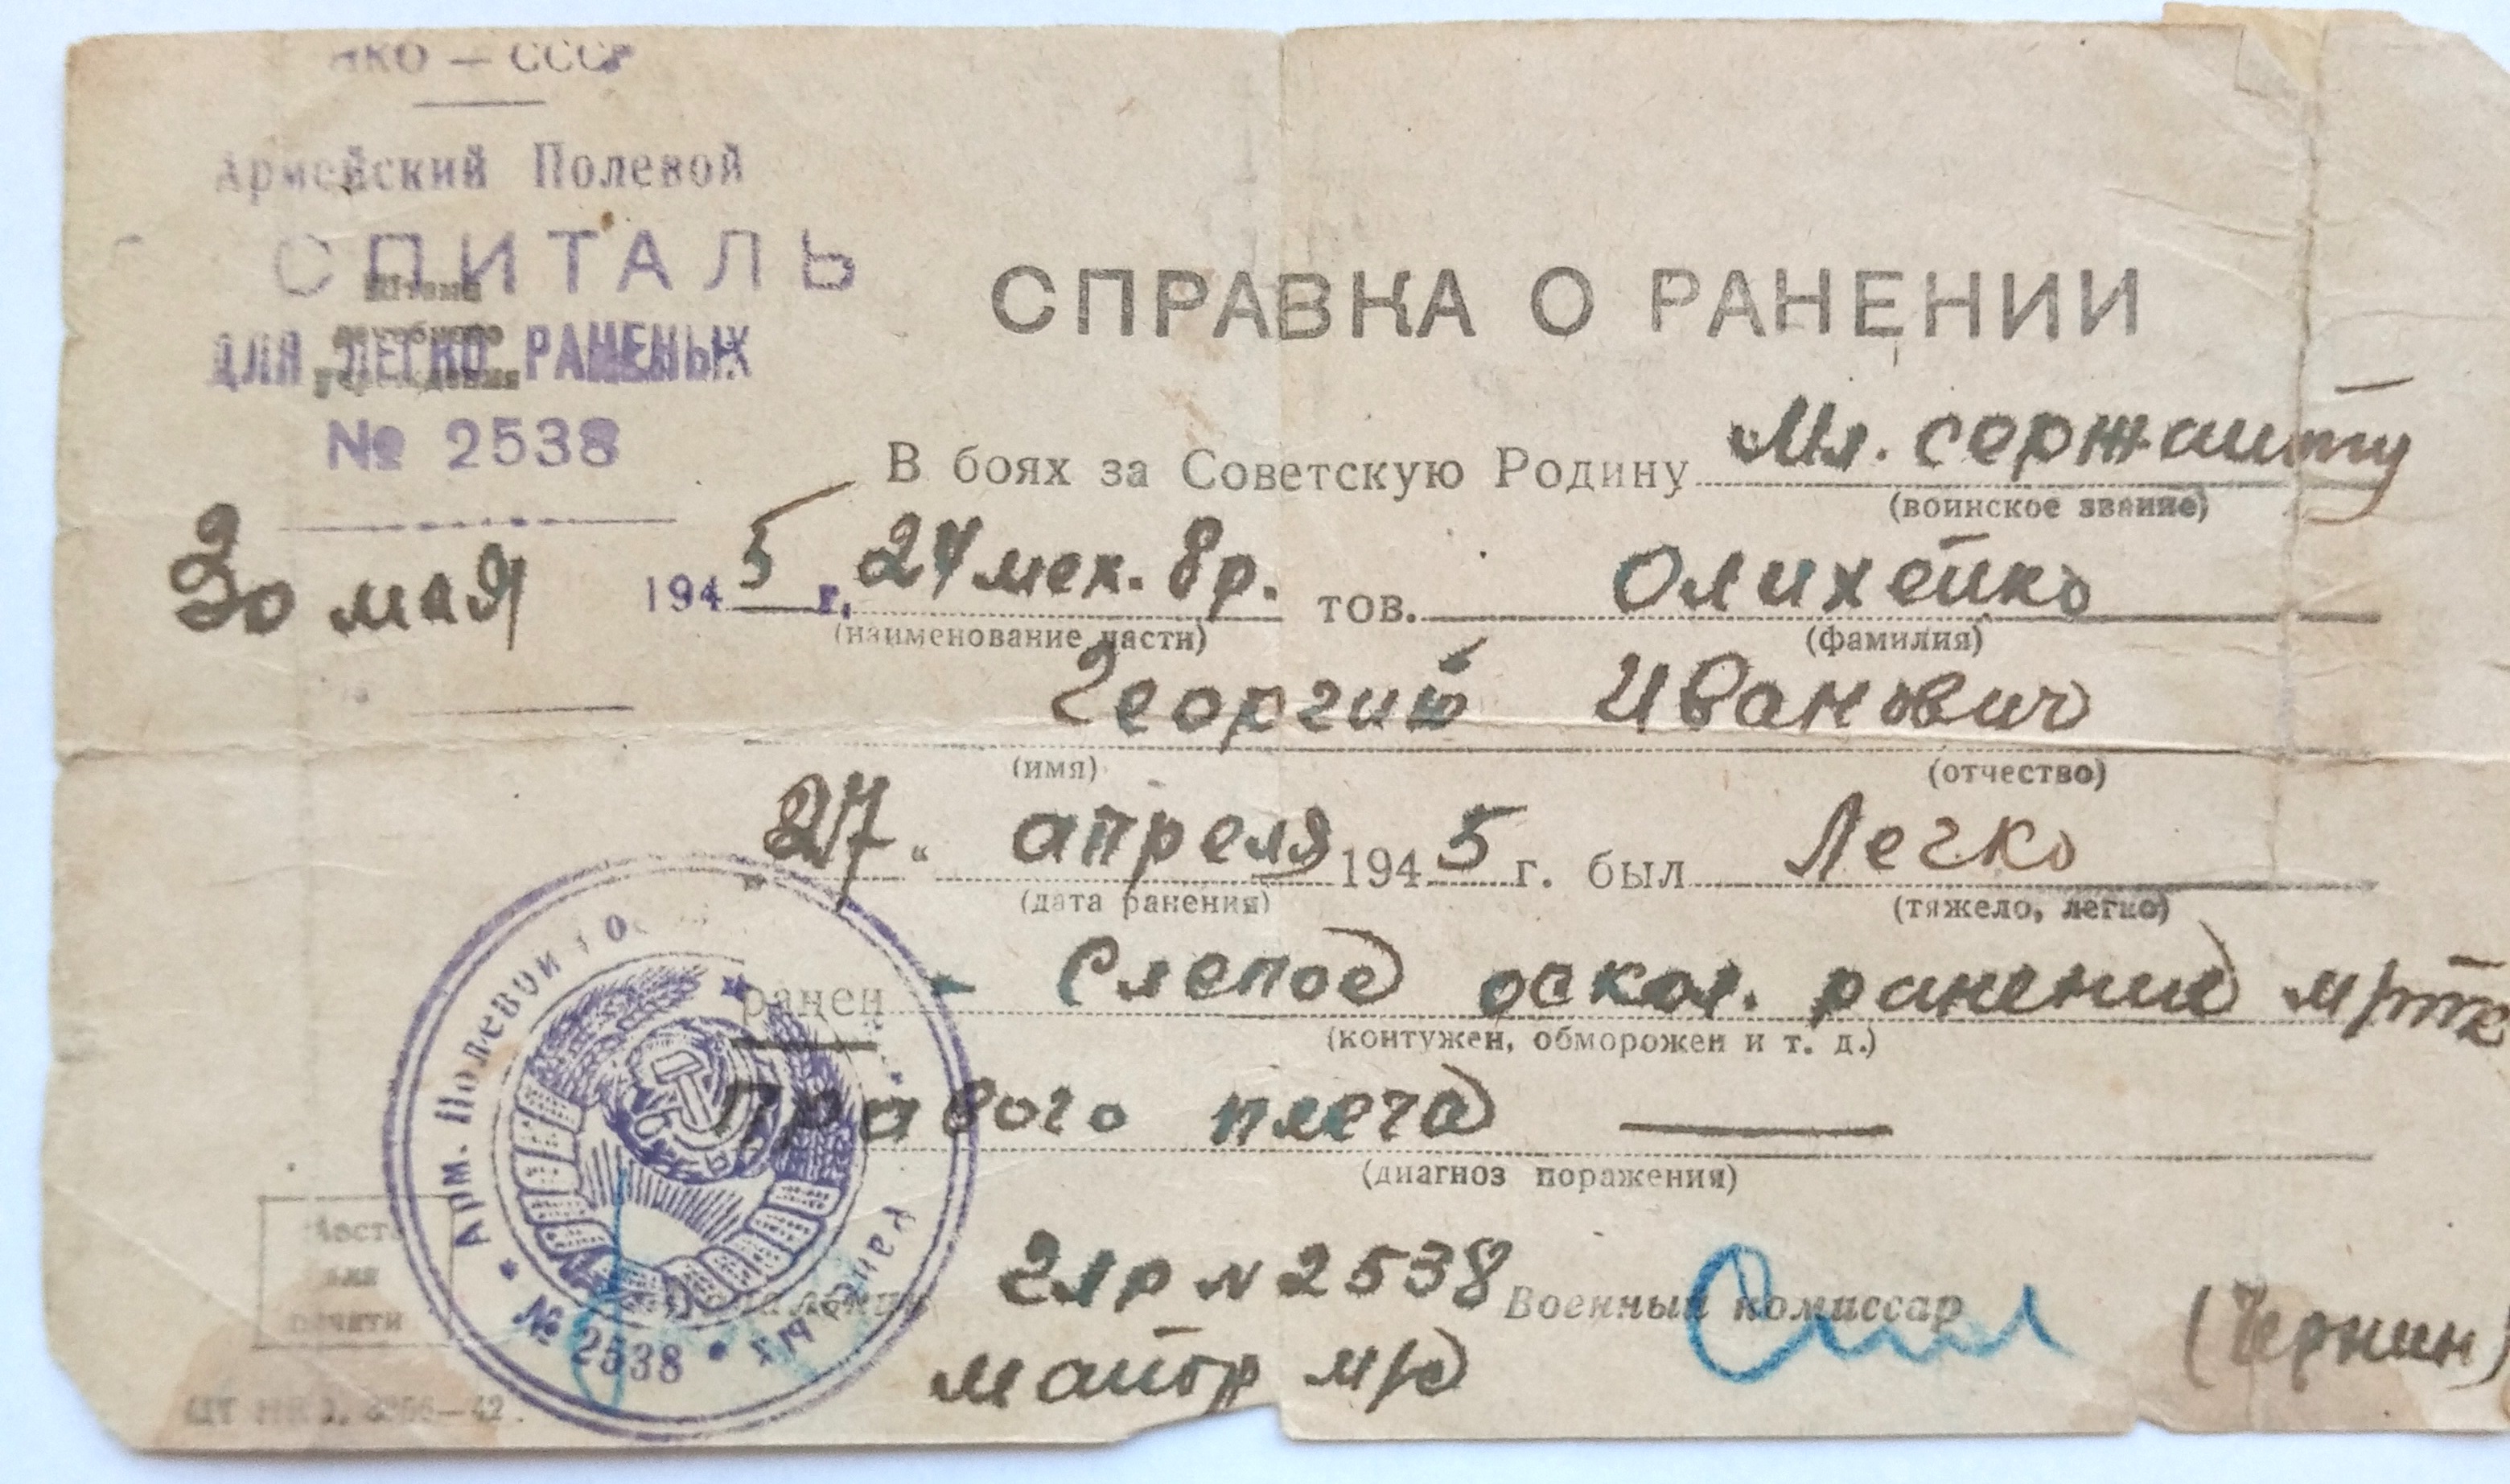 НКО — СССР
Армейский Полевой
СПИТАЛЬ
Штамп
лечебного
учреждения
ДЛЯ ЛЕГКО РАНЕНЫХ
№ 2538
30 мая 1945 г.
СПРАВКА О РАНЕНИИ
В боях за Советскую Родину Мл. сержанту
(воинское звание)
мех. бр. тов. Олихейко
(наименование части) (фамилия)
Георгий Иванович
(имя) (отчество)
„27“ апреля 1945 г. был Легко
(дата ранения) (тяжело, легко)
ранен - Слепое оскол. ранение м/тк
(контужен, обморожен и т. д.)
правого плеча
(диагноз поражения)
Место
для
печати
Арм. Полевой Раненых № 2538
Начальник ГЛР № 2538 Военный комиссар (Чернин)
майор м/с